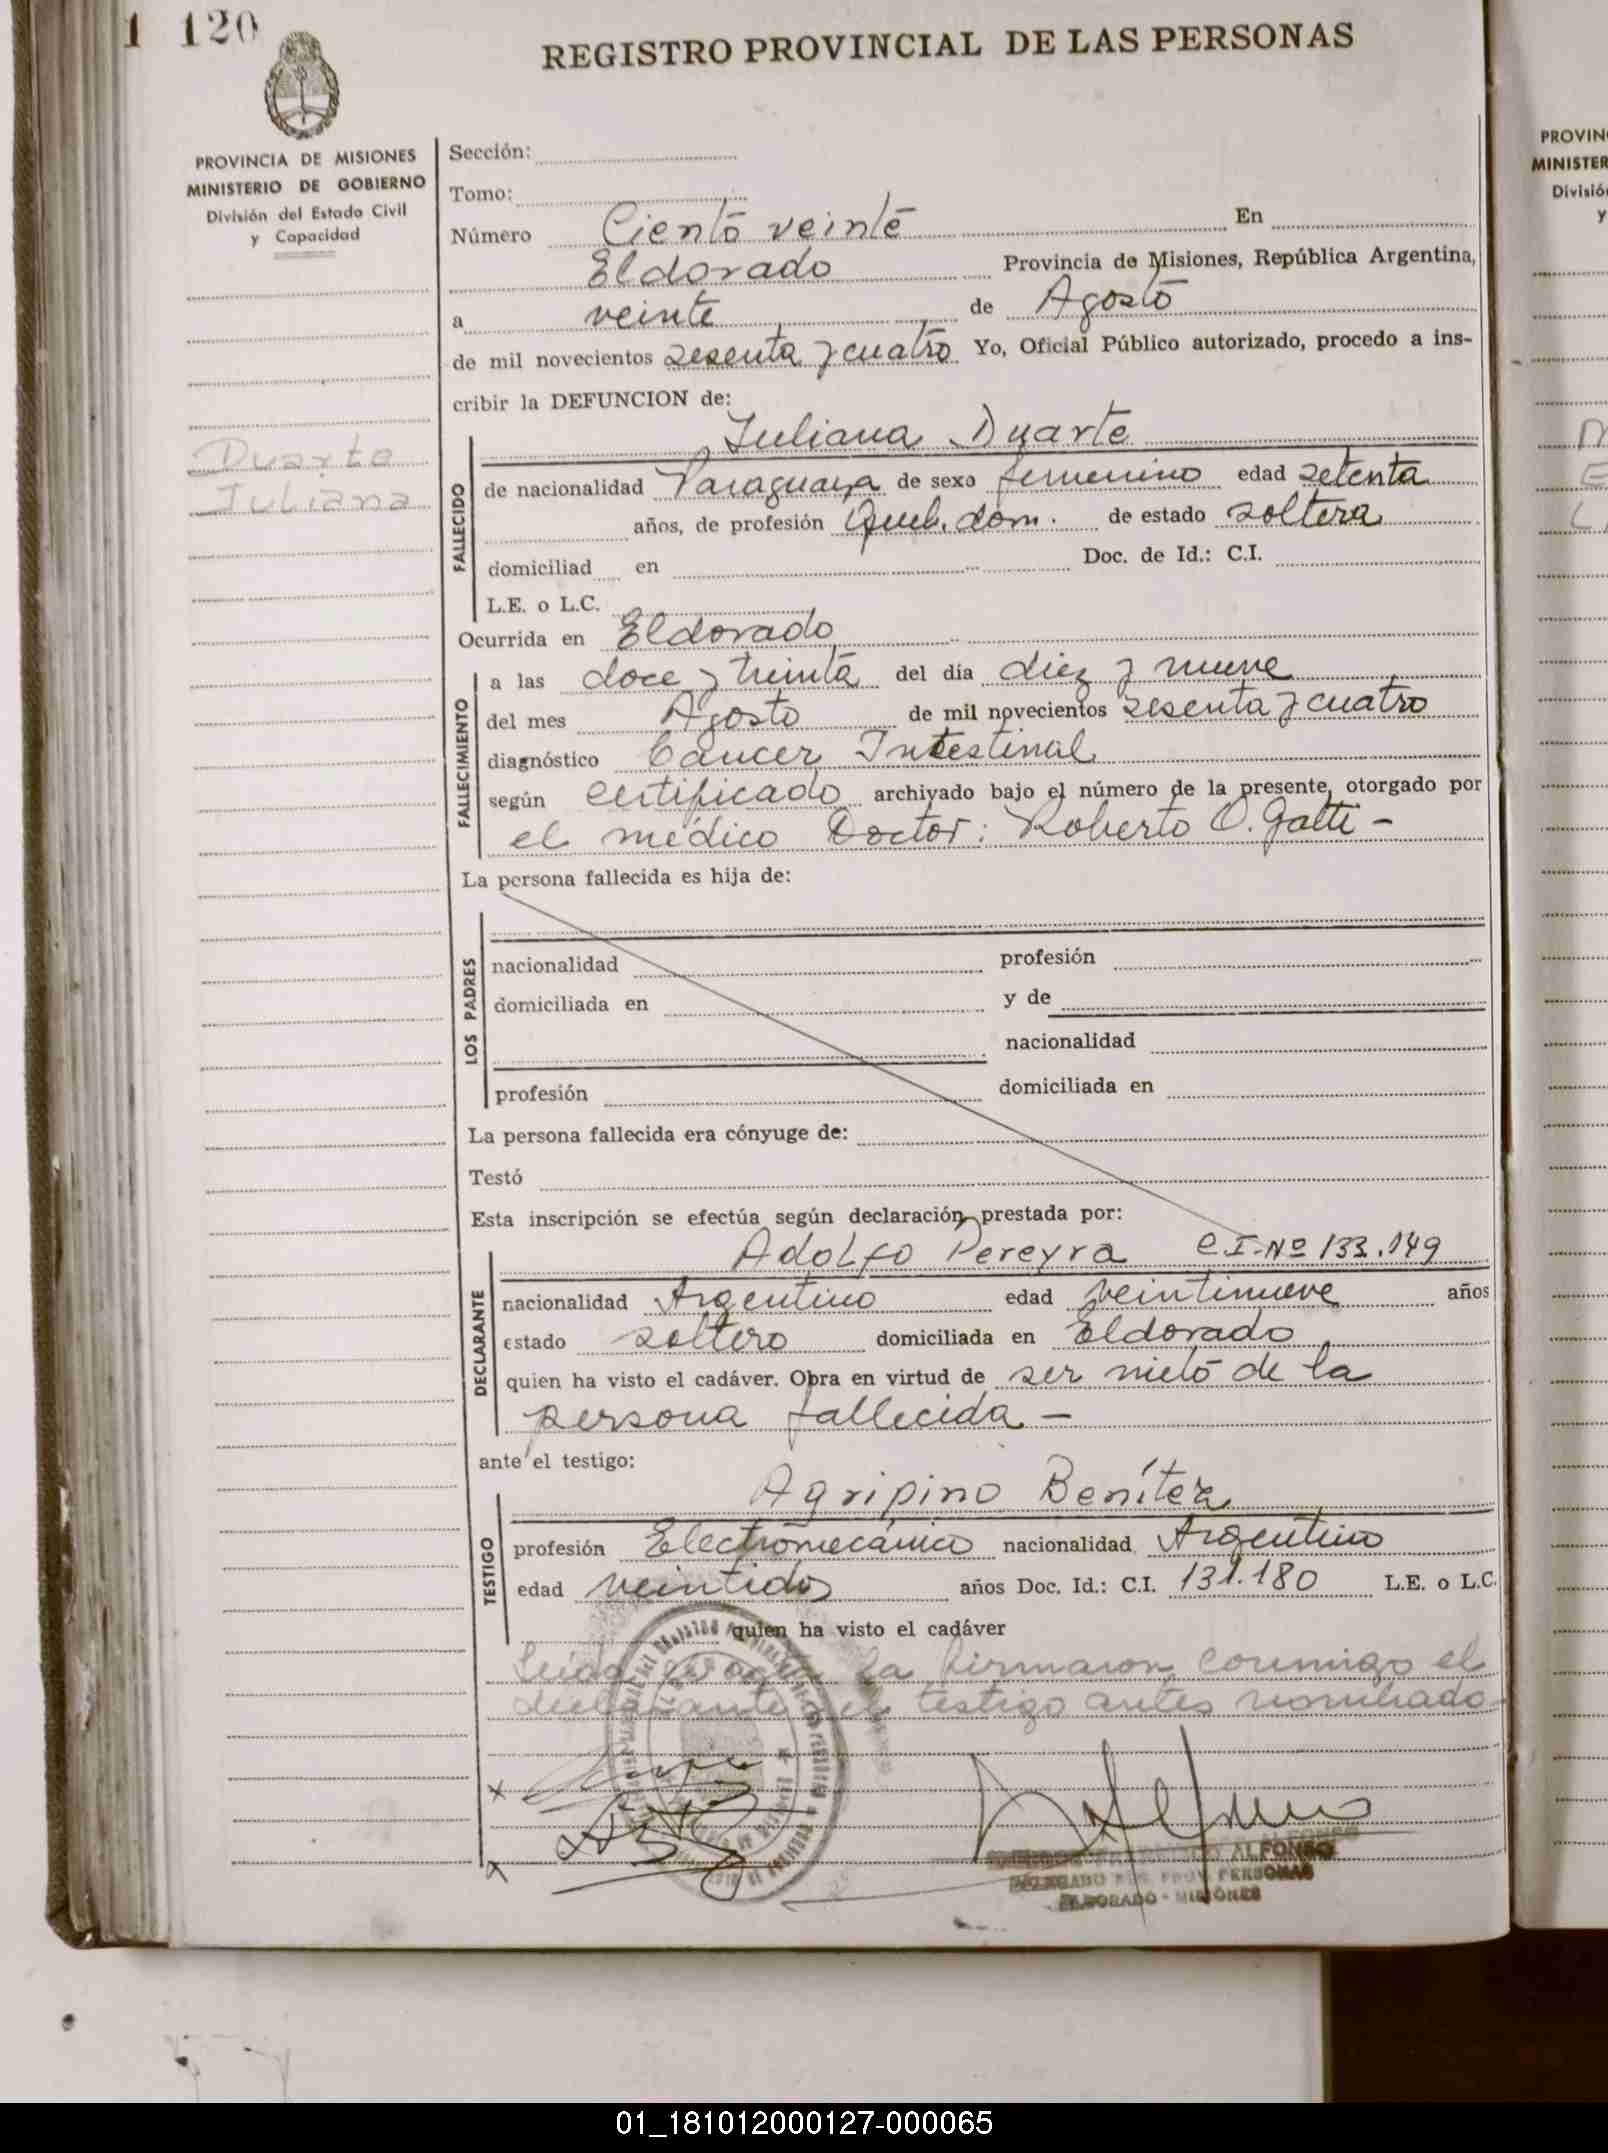 1 120
REGISTRO PROVINCIAL DE LAS PERSONAS
PROVINCIA DE MISIONES
MINISTERIO DE GOBIERNO
División del Estado Civil
y Capacidad
Duarte
Juliana
Sección:
Tomo:
Número Ciento veinte En
Eldorado Provincia de Misiones, República Argentina,
a veinte de Agosto
de mil novecientos sesenta y cuatro Yo, Oficial Público autorizado, procedo a ins-
cribir la DEFUNCION de:
Juliana Duarte
FALLECIDO
de nacionalidad Paraguaya de sexo femenino edad setenta
años, de profesión Queh. dom. de estado soltera
domiciliad en Doc. de Id.: C.I.
L.E. o L.C.
Ocurrida en Eldorado
FALLECIMIENTO
a las doce y treinta del día diez y nueve
del mes Agosto de mil novecientos sesenta y cuatro
diagnóstico Cancer Intestinal
según certificado archivado bajo el número de la presente, otorgado por
el médico Doctor: Roberto O. Gatti -
La persona fallecida es hija de:
LOS PADRES
nacionalidad profesión
domiciliada en y de
nacionalidad
profesión domiciliada en
La persona fallecida era cónyuge de:
Testó
Esta inscripción se efectúa según declaración prestada por:
Adolfo Pereyra C.I. Nº 133.149
DECLARANTE
nacionalidad Argentino edad veintinueve años
estado soltero domiciliada en Eldorado
quien ha visto el cadáver. Obra en virtud de ser nieto de la
persona fallecida -
ante el testigo:
Agripino Benítez
TESTIGO
profesión Electromecánico nacionalidad Argentino
edad veintidos años Doc. Id.: C.I. 131.180 L.E. o L.C.
quien ha visto el cadáver
Leída el acta la firmaron conmigo el
declarante y el testigo antes nombrado-
ALFONSO
DELEGADO REG. PROV. PERSONAS
ELDORADO - MISIONES
PROVIN
MINISTER
Divisió
y
01_181012000127-000065